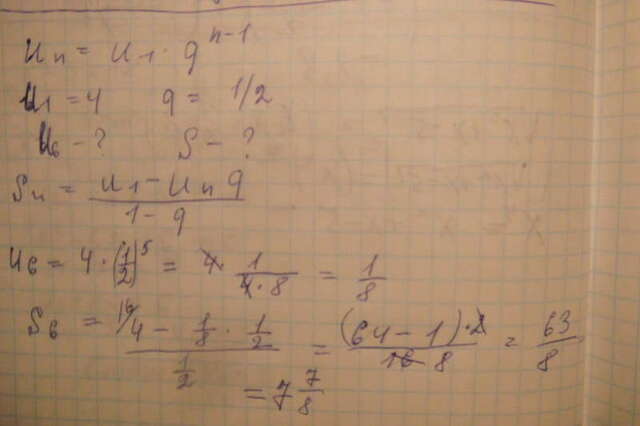 uₙ = u₁ · qⁿ⁻¹
u₁ = 4 q = 1/2
u₆ – ? S – ?
Sₙ = (u₁ – uₙ q) / (1 – q)
u₆ = 4 · (1/2)⁵ = 4 · 1 / (4 · 8) = 1/8
S₆ = (¹⁶/4 – 1/8 · 1/2) / (1/2) = (64 – 1) · 2 / (16 8) = 63/8
= 7 7/8